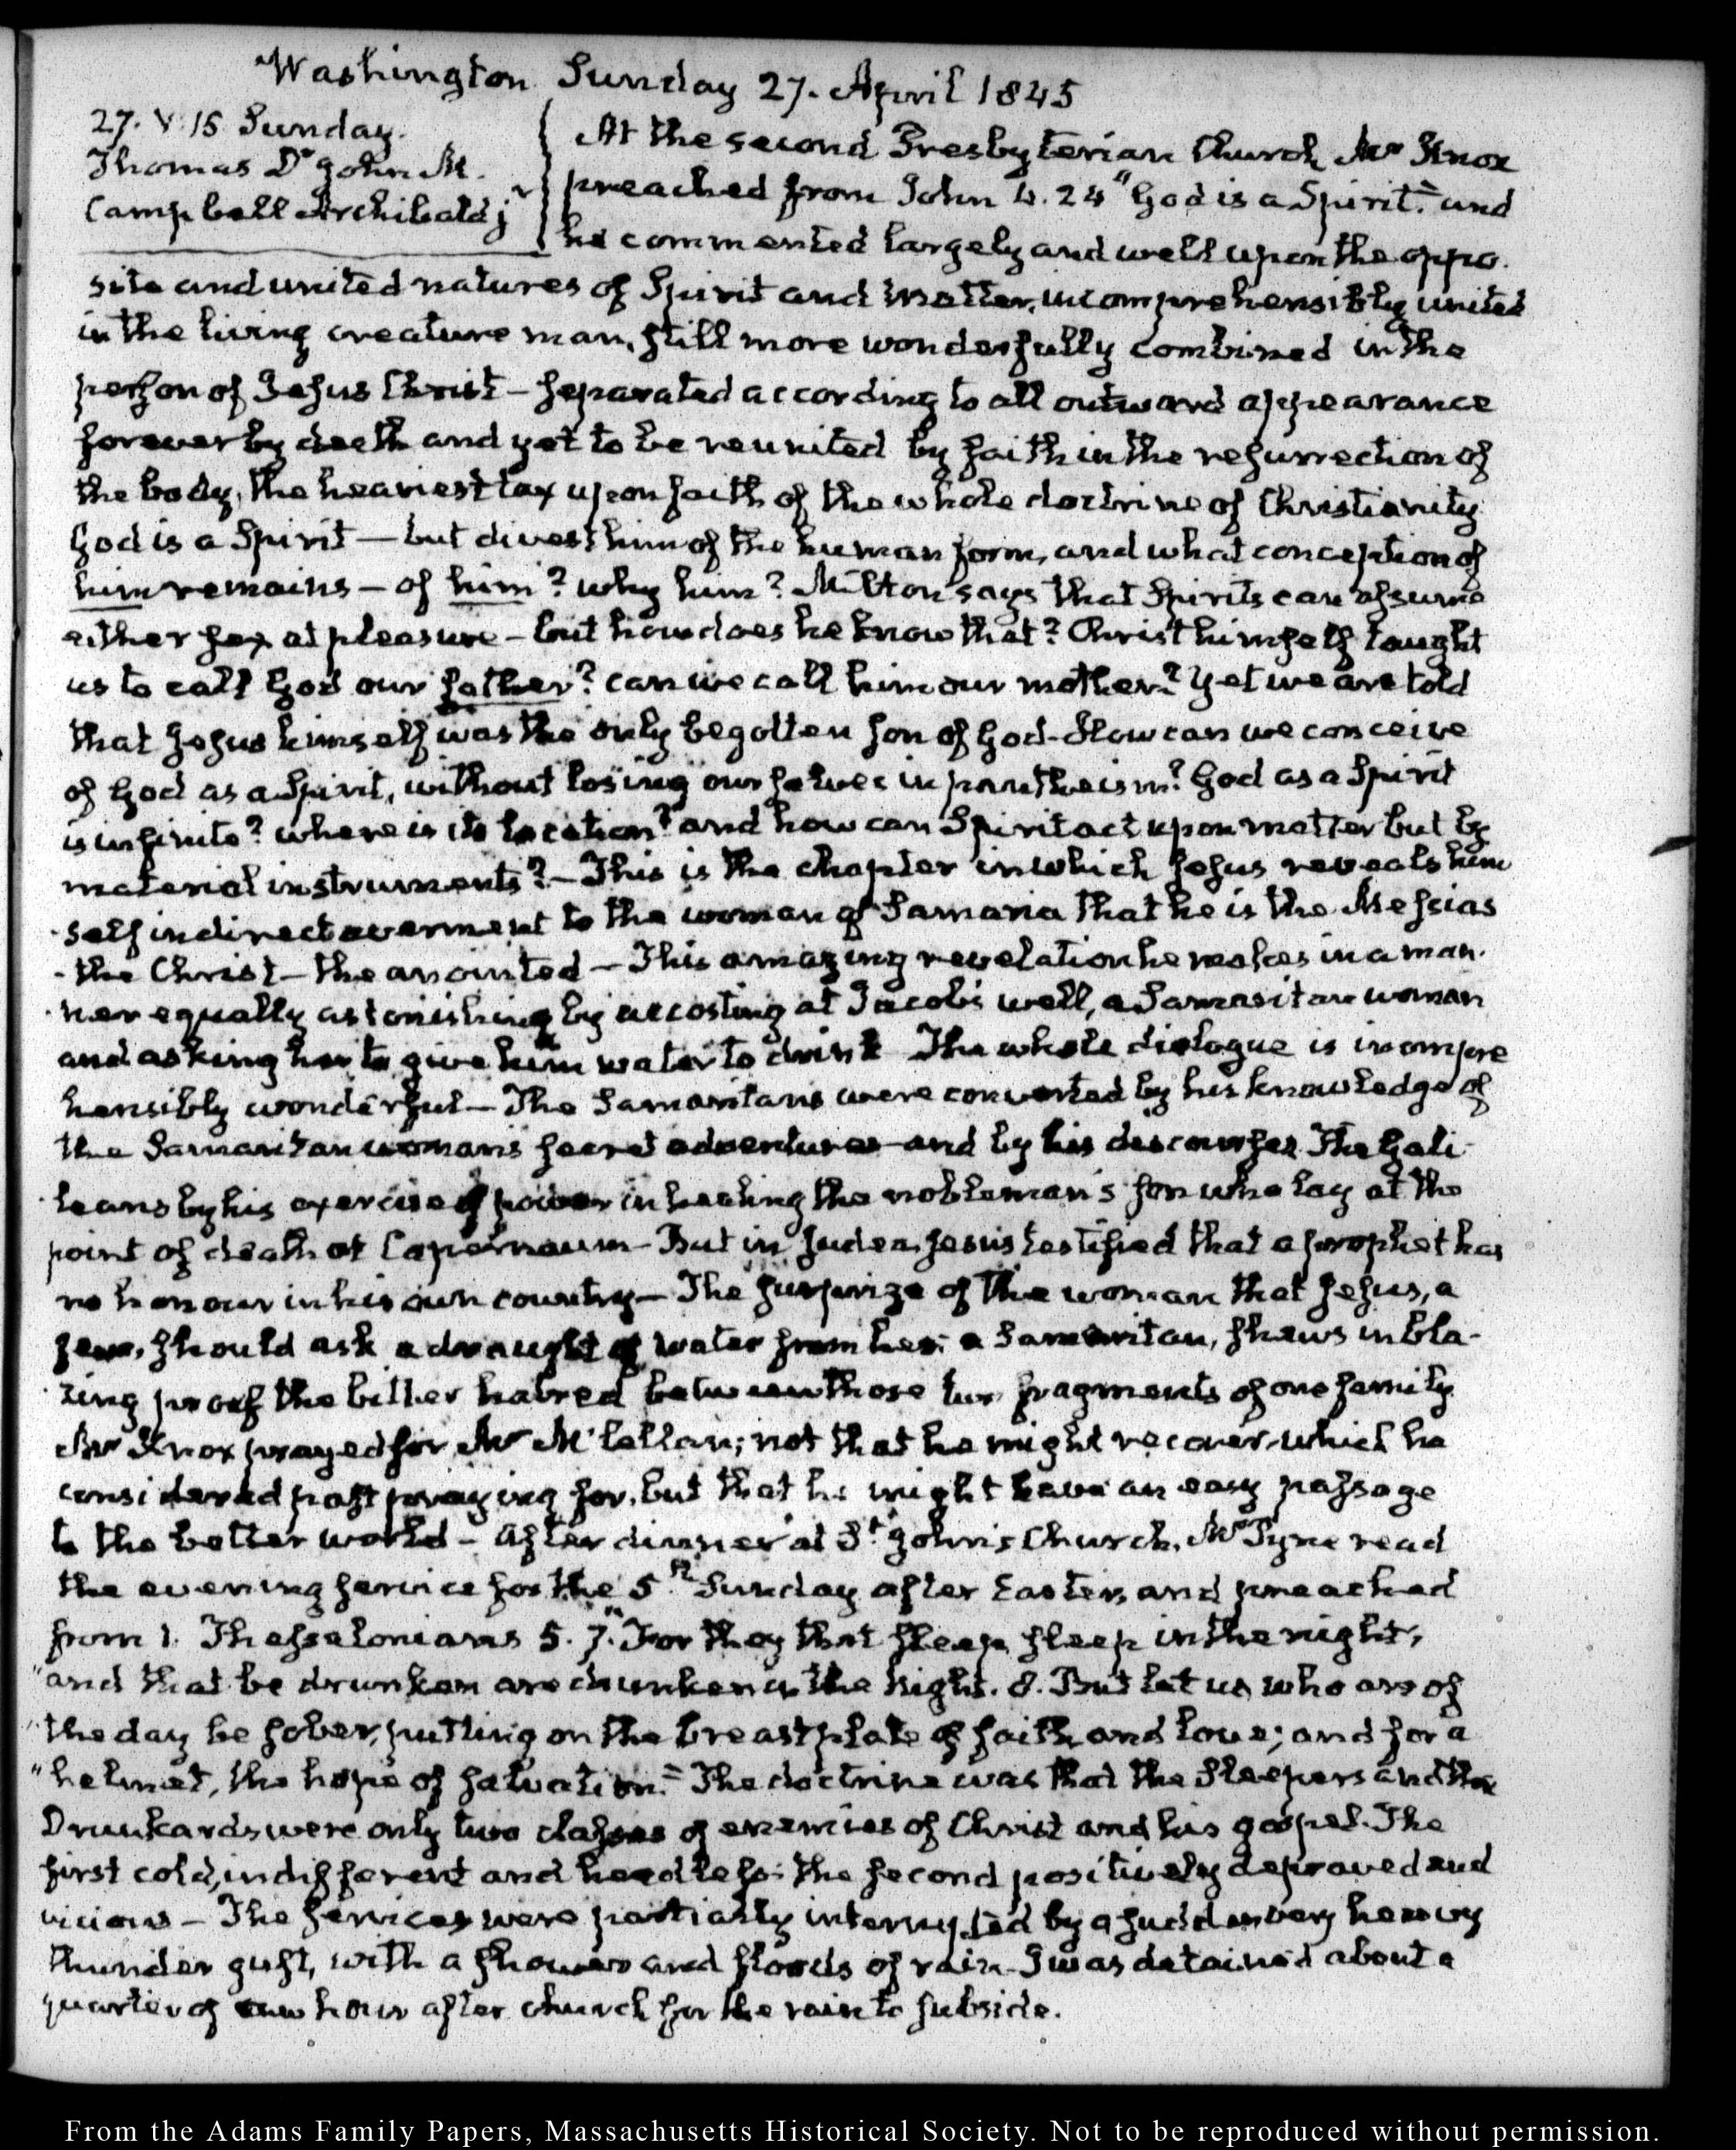 Washington Sunday 27. April 1845
27. V:15 Sunday.
Thomas Dr John M.
Campbell Archibald j
At the second Presbyterian Church Mr Knox
preached from John 4. 24 "God is a Spirit." and
he commented largely and well upon the oppo-
site and united natures of Spirit and matter, incomprehensibly united
in the living creature man, still more wonderfully combined in the
person of Jesus Christ – separated according to all outward appearance
forever by death and yet to be reunited by faith in the resurrection of
the body, the heaviest tax upon faith of the whole doctrine of Christianity
God is a Spirit — but divest him of the human form, and what conception of
him remains – of him? why him? Milton says that Spirits can assume
either sex at pleasure – but how does he know that? Christ himself taught
us to call God our father? can we call him our mother? Yet we are told
that Jesus himself was the only begotten son of God. How can we conceive
of God as a Spirit, without losing ourselves in pantheism? God as a Spirit
is infinite? where is its location? and how can Spirit act upon matter but by
material instruments? – This is the chapter in which Jesus reveals him
self in direct averment to the woman of Samaria that he is the Messias
- the Christ – the anointed – This amazing revelation he makes in a man-
ner equally astonishing by accosting at Jacob's well, a Samaritan woman
and asking her to give him water to drink The whole dialogue is incompre
hensibly wonderful – The Samaritans were converted by his knowledge of
the Samaritan woman's secret adventures and by his discourses. The Gali-
leans by his exercise of power in healing the nobleman's son who lay at the
point of death at Capernaum – But in Judea Jesus testified that a prophet has
no honour in his own country – The surprize of the woman that Jesus, a
Jew, should ask a draught of water from her, a Samaritan, shews in bla-
zing proof the bitter hatred between those two fragments of one family
Mr Knox prayed for Mr McLellan; not that he might recover, which he
considered past praying for, but that he might have an easy passage
to the better world – After dinner at St. John's Church, Mr Pyne read
the evening service for the 5th Sunday after Easter, and preached
from 1. Thessalonians 5. 7. "For they that sleep, sleep in the night,
"and that be drunken are drunken in the night. 8. But let us who are of
"the day be sober, putting on the breastplate of faith and love; and for a
"helmet, the hope of salvation." The doctrine was that the Sleepers and the
Drunkards were only two classes of enemies of Christ and his gospel. The
first cold, indifferent and heedless: the second positively depraved and
vicious – The services were partially interrupted by a sudden very heavy
thunder gust, with a shower and floods of rain. I was detained about a
quarter of an hour after church for the rain to subside.
From the Adams Family Papers, Massachusetts Historical Society. Not to be reproduced without permission.